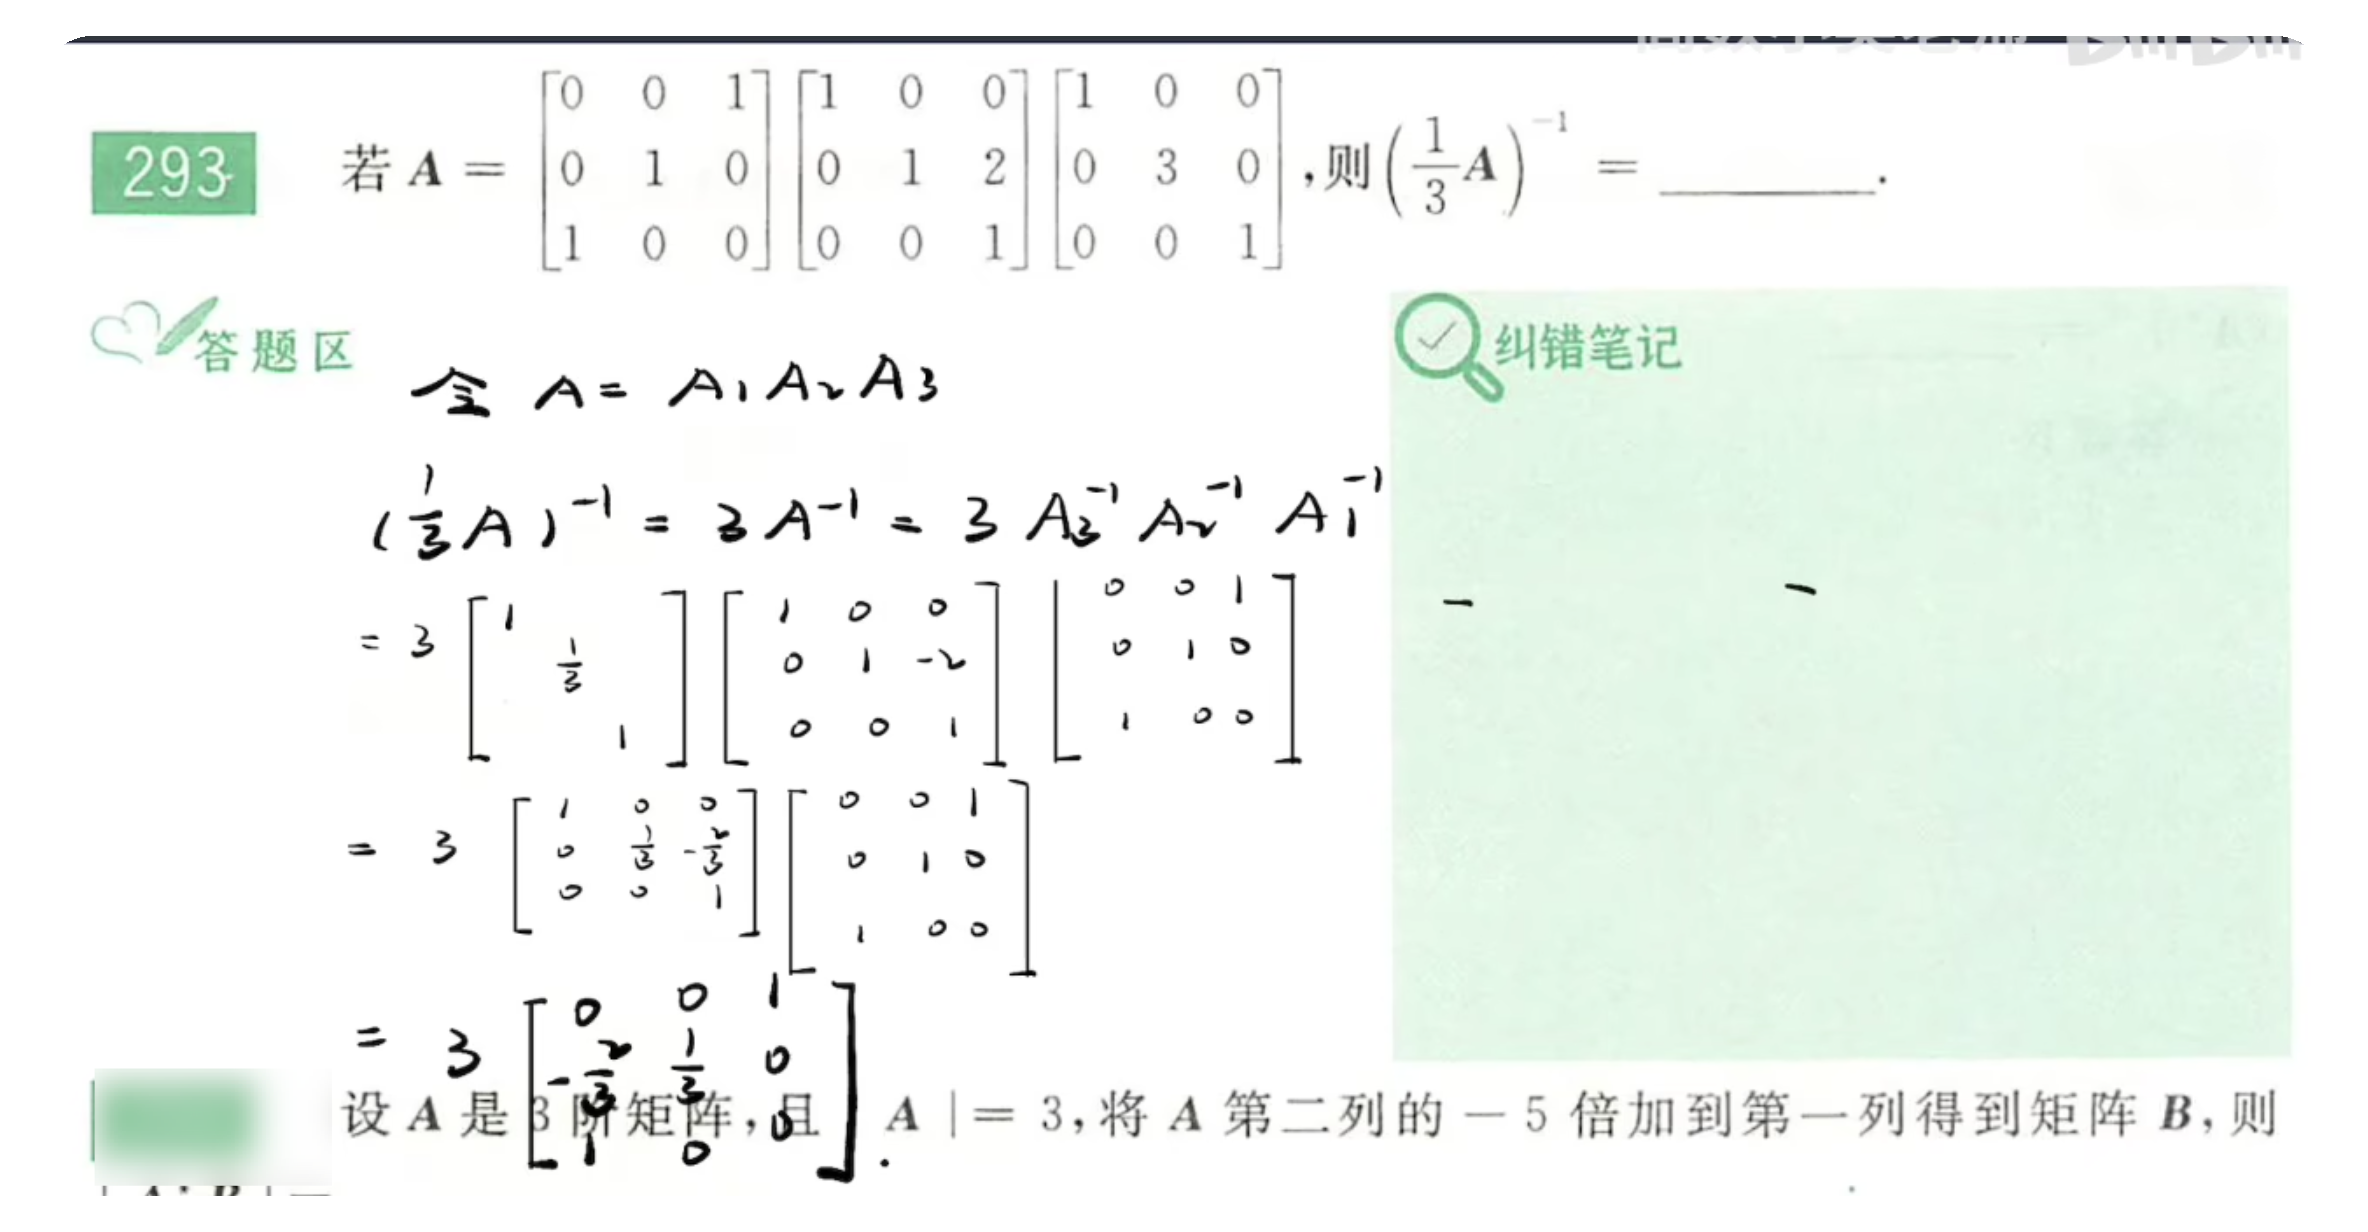 293 若 A = [0 0 1; 0 1 0; 1 0 0] [1 0 0; 0 1 2; 0 0 1] [1 0 0; 0 3 0; 0 0 1], 则 (1/3 A)^{-1} = ________.
答题区
纠错笔记
令 A = A₁A₂A₃
(1/3 A)^{-1} = 3A^{-1} = 3 A₃^{-1} A₂^{-1} A₁^{-1}
= 3 [1; 1/3; 1] [1 0 0; 0 1 -2; 0 0 1] [0 0 1; 0 1 0; 1 0 0]
= 3 [1 0 0; 0 1/3 -2/3; 0 0 1] [0 0 1; 0 1 0; 1 0 0]
= 3 [0 0 1; -2/3 1/3 0; 1 0 0].
设 A 是 3 阶矩阵, 且 A | = 3, 将 A 第二列的 -5 倍加到第一列得到矩阵 B, 则